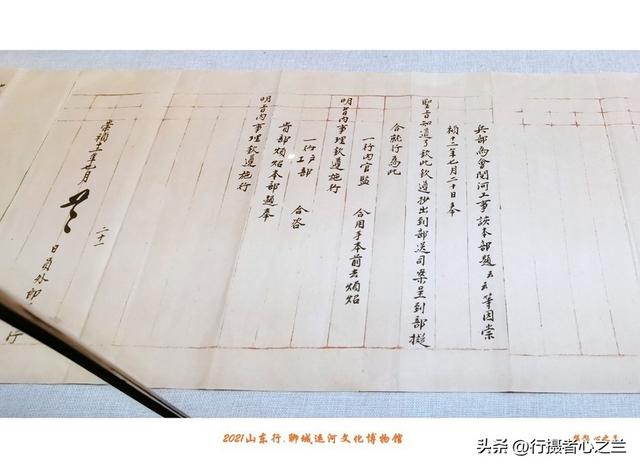 兵部為會閱河工事該本部題云云等因崇
禎十一年七月二十日奉
聖旨知道了欽此欽遵抄出到部送司案呈到部擬
合就行為此
一行內官監 合用手本前去煩炤
明旨內事理欽遵施行
一行戶工部 合咨
貴部煩炤本部題奉
明旨內事理欽遵施行
二十一
崇禎十一年七月 日員外郎
行
2021山东行.聊城运河文化博物馆
头条 @行摄者心之兰